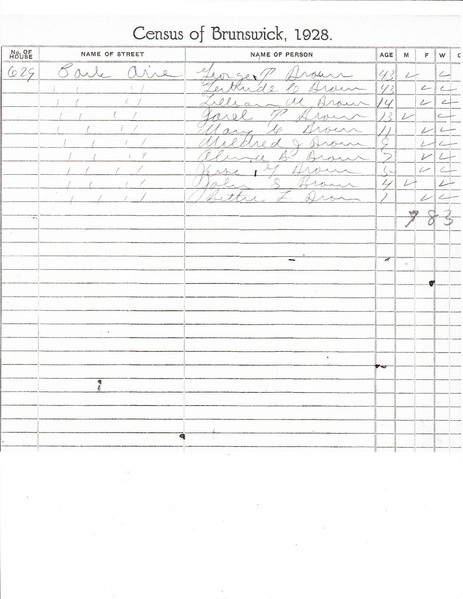 Census of Brunswick, 1928.
No. OF HOUSE NAME OF STREET NAME OF PERSON AGE M F W C
629 Park Ave George P Brown 43 ✓ ✓
" " " " Gertrude C Brown 43 ✓ ✓
" " " " Lillian M Brown 14 ✓ ✓
" " " " P Brown 13 ✓ ✓
" " " " Mary C Brown 11 ✓ ✓
" " " " Mildred J Brown 9 ✓ ✓
" " " " Brown 7 ✓ ✓
" " " " Brown 5 ✓ ✓
" " " " S Brown 4 ✓ ✓
" " " " L Brown 1 ✓ ✓
83